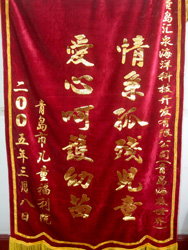 青岛汇泉海洋科技开发有限公司(青岛海底世界)
情系孤残儿童
爱心呵护幼苗
青岛市儿童福利院
二〇〇五年三月八日